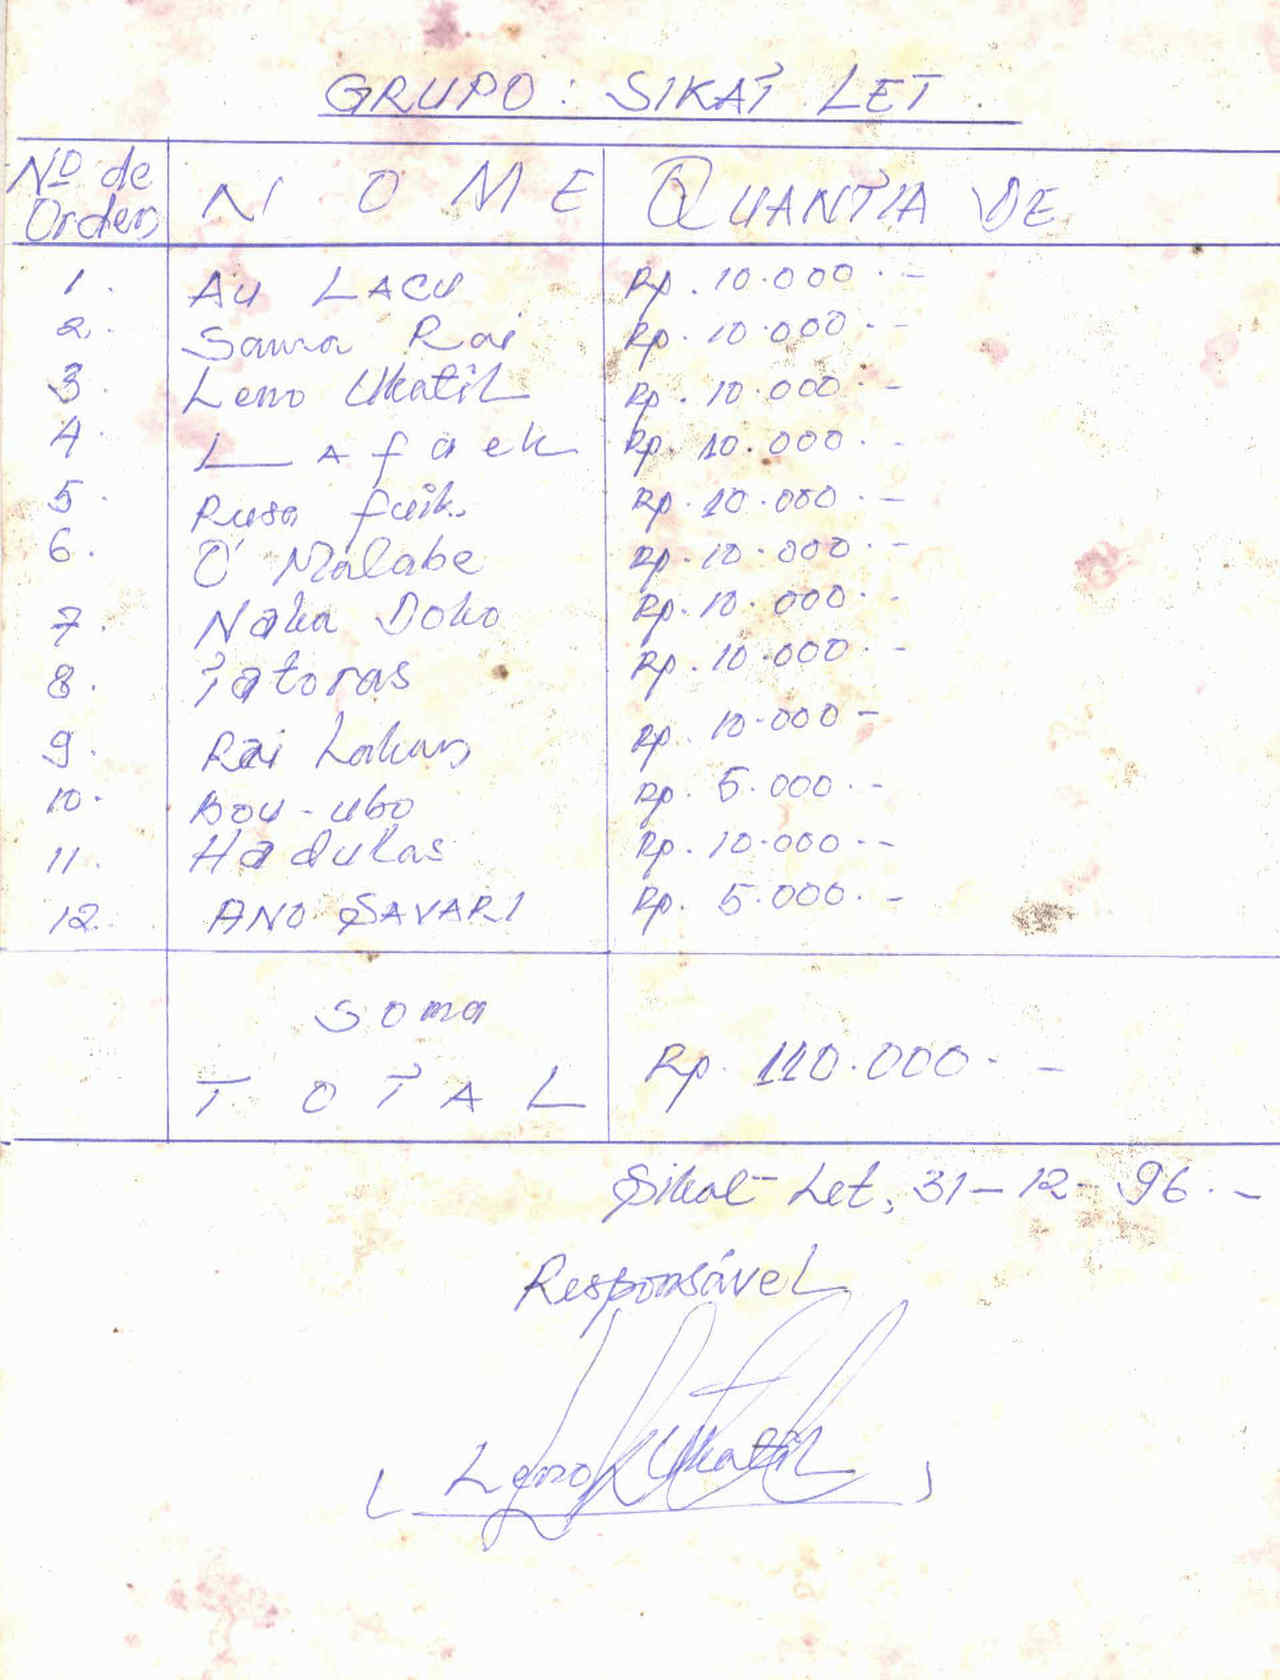 GRUPO: SIKAT LET.
Nº de Ordem NOME QUANTIA DE
1. Au LACU Rp. 10.000.-
2. Sama Rai Rp. 10.000.-
3. Leno Ukatil Rp. 10.000.-
4. Lafaek Rp. 10.000.-
5. Rusa fuik. Rp. 10.000.-
6. O' Malabe Rp. 10.000.-
7. Naha Doko Rp. 10.000.-
8. Tatoras Rp. 10.000.-
9. Rai Lakan Rp. 10.000-
10. Bou-ubo Rp. 5.000.-
11. Hadukas Rp. 10.000.-
12. ANO SAVARI Rp. 5.000.-
Soma
TOTAL Rp. 110.000.-
Sikat-Let, 31-12-96.-
Responsável
(Leno Ukatil)